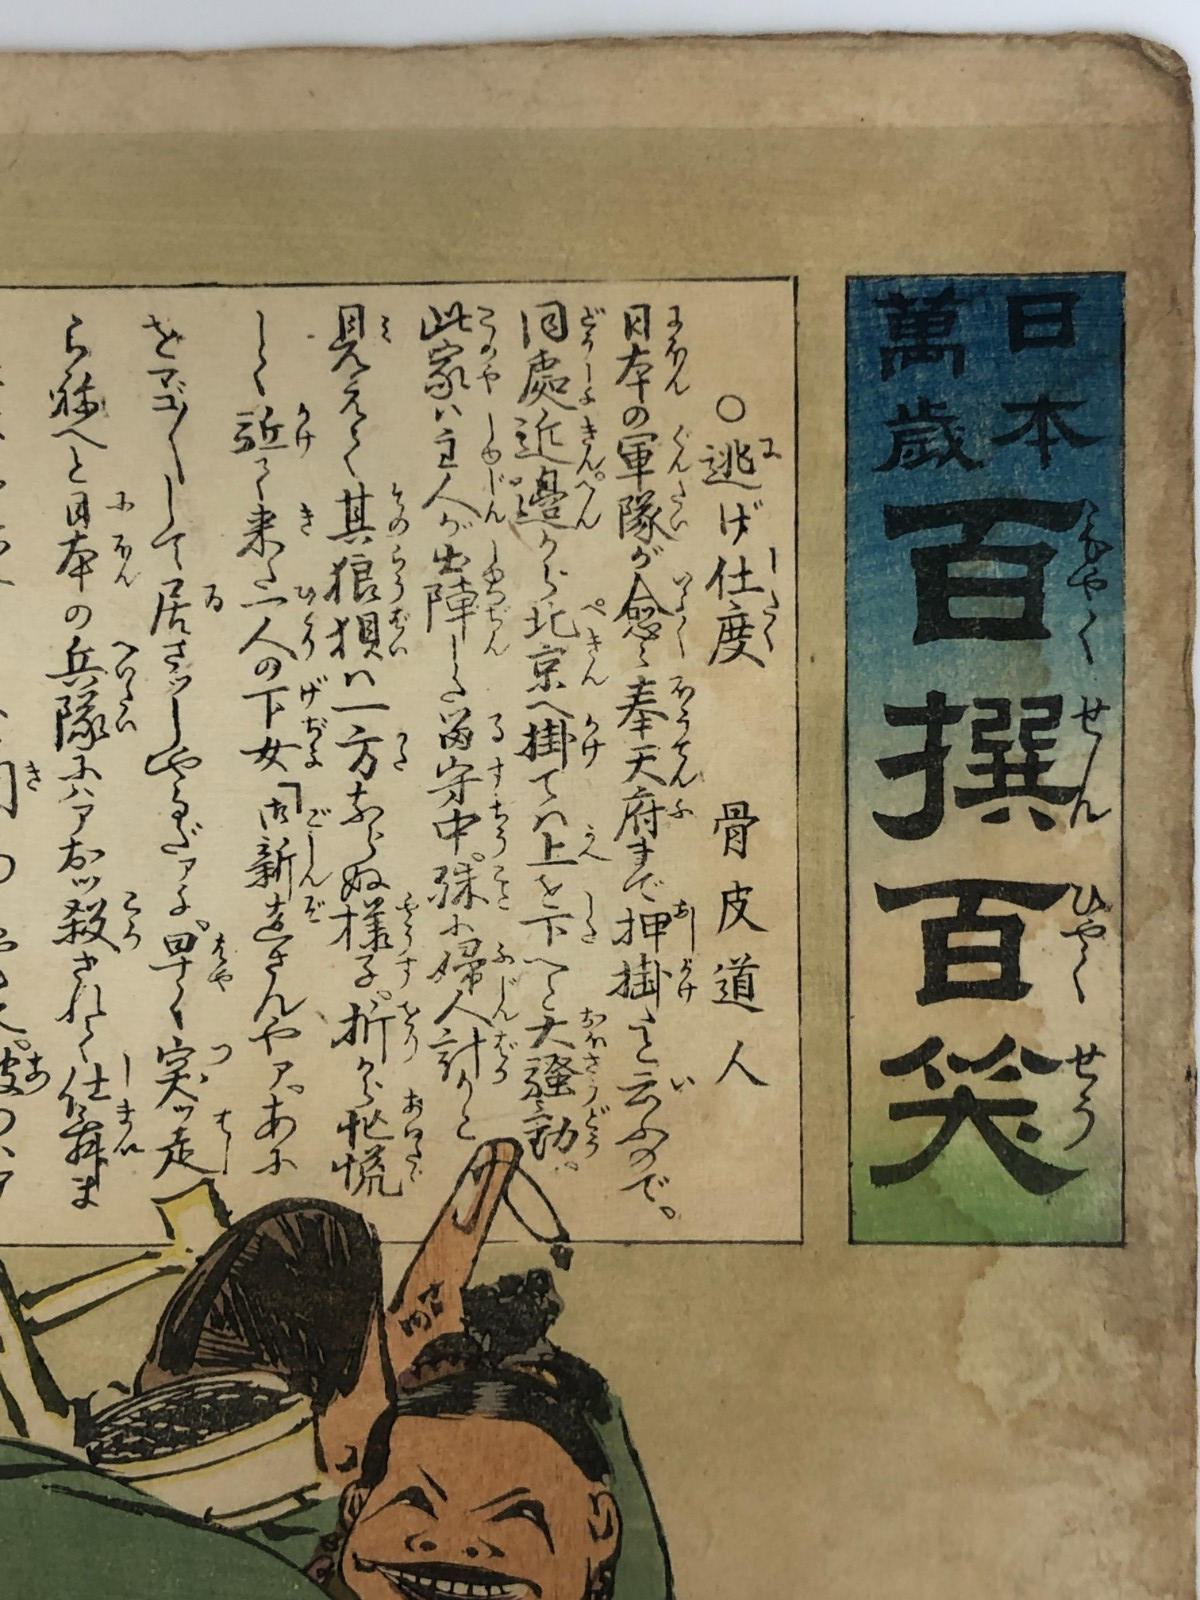 日本
萬歲
百撰百笑
ひやくせんひやくせう
○逃げ仕度
骨皮道人
日本の軍隊が愈々奉天府まで押掛たと云ふので。
同處近邊から北京へ掛てハ上を下へと大騒動。
此家ハ主人が出陣した留守中。殊に婦人計りと
見えて其狼狽ハ一方ならぬ様子。折から慌慌
しく駈て来た一人の下女「御新造さんやア。あに
をマゴ〳〵して居さッしやるだアよ。早く突ッ走
らねへと日本の兵隊にハアおッ殺されて仕舞ま